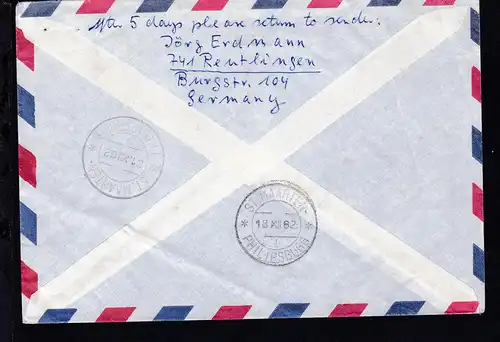 After 5 days please return to sender:
Jörg Erdmann
741 Reutlingen
Burgstr. 104
Germany
ST. MAARTEN
* 18 XII 82 *
1
PHILIPSBURG
ST. MAARTEN